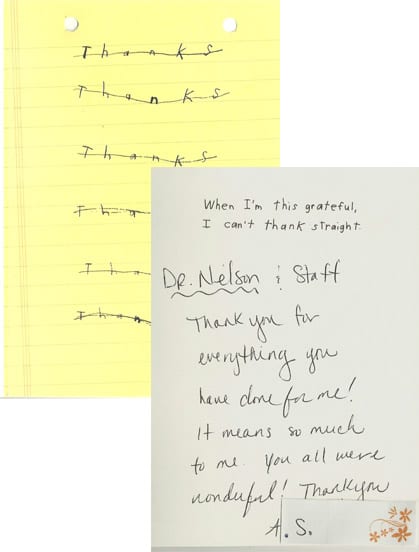 Thanks
Thanks
Thanks
Tha
Tha
Than
When I'm this grateful,
I can't thank straight.
Dr. Nelson & Staff
Thank you for
everything you
have done for me!
It means so much
to me. You all were
wonderful! Thankyou
A.S.